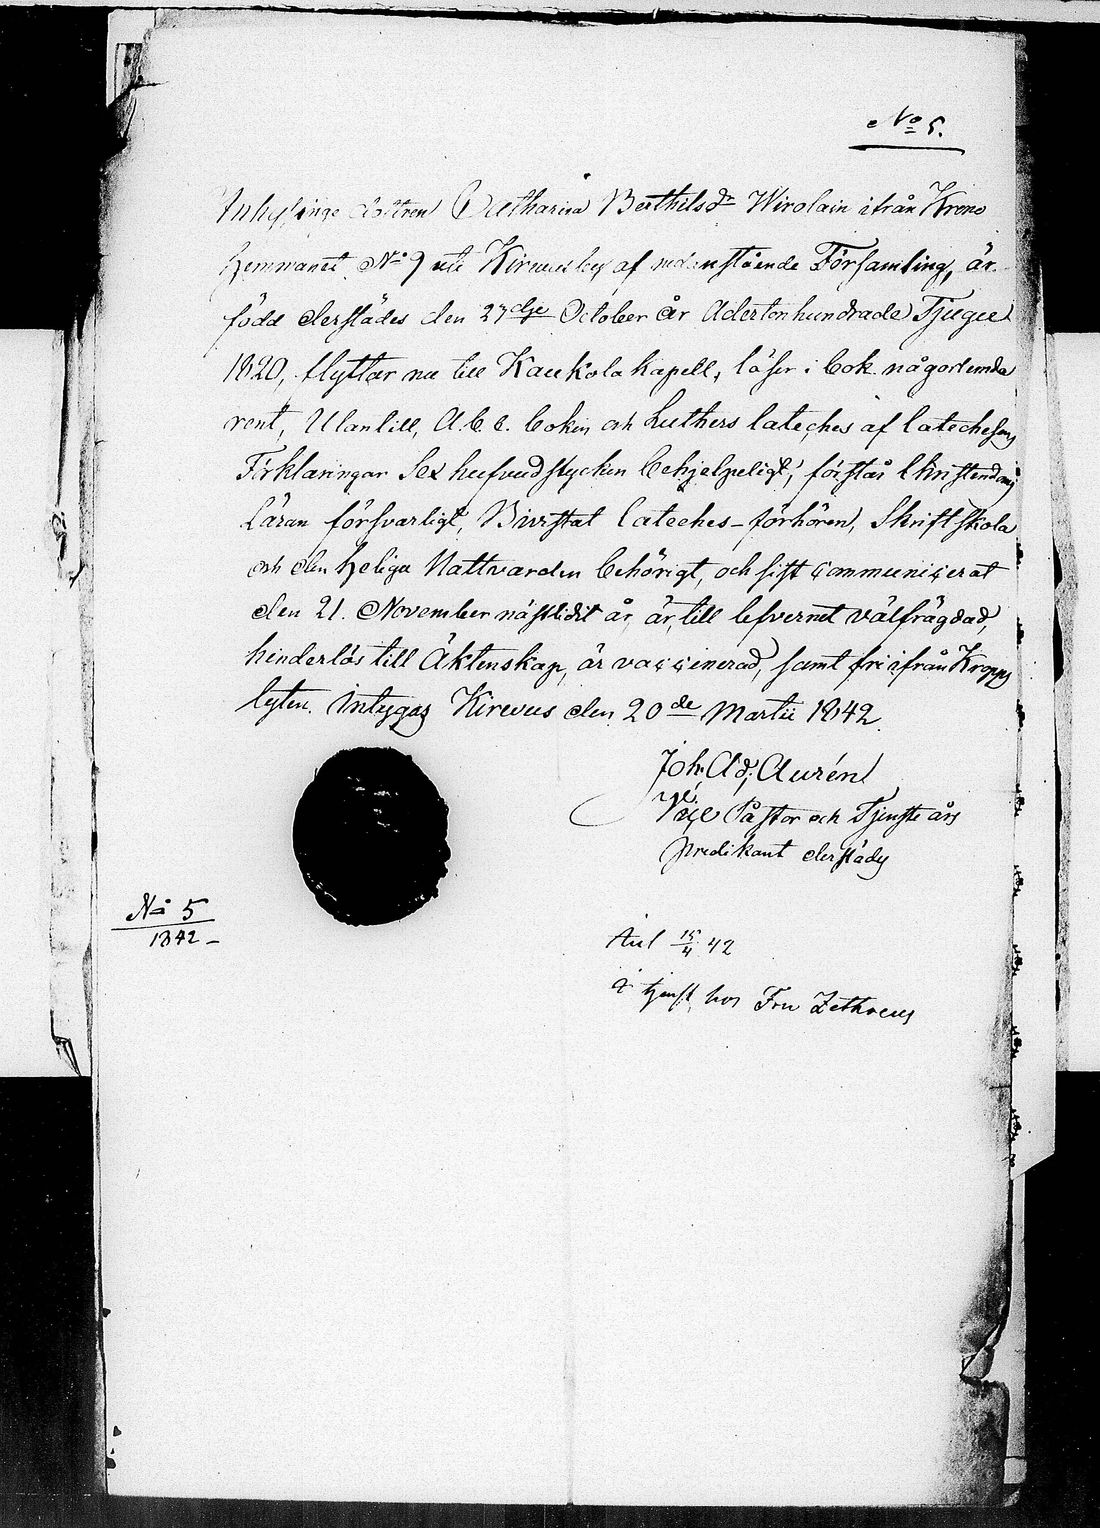 No 5.
Inhysinge dottren Catharina Berthilsdr Wirolain ifrån Krono
hemmanet No 9 uti Kirvusby af nedanstående Församling, är
född derstädes den 27dje October år Adertonhundrade Tjugu
1820, flyttar nu till Kaukola Kapell, läser i bok någorlunda
rent, Utantill, A.b.c. boken och Luthers Cateches af Catechesens
Förklaringar Sex hufvudstycken behjelpeligt, förstår Christendoms
läran försvarligt, Bivistat Cateches-förhören, Skriftskola
och den heliga Nattvarden behörigt, och sist communicerat
den 21. November nästlidit år, är, till lefvernet välfrägdad,
hinderlös till Äktenskap, är vaccinerad, samt fri ifrån Kropps
lyten. Intygas Kirvus den 20de Martii 1842.
Joh. Ad. Aurén
Vice Pastor och Tjensteårs
predikant derstädes
No 5
1842
Aul 15/4 42
i tjenst hos Fru Zethræus